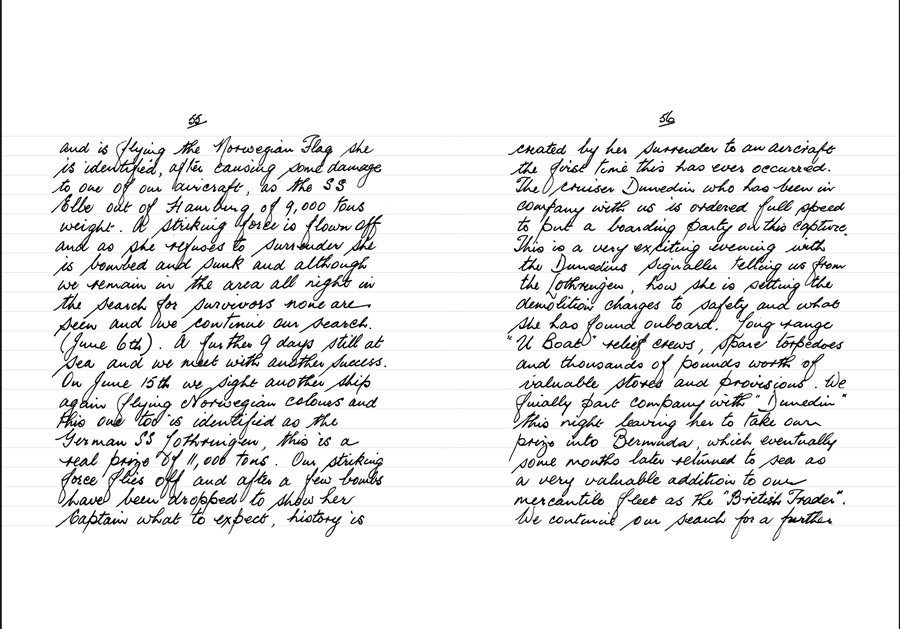 55
and is flying the Norwegian Flag she
is identified, after causing some damage
to one of our aircraft, as the SS
Elbe out of Hamburg of 9,000 tons
weight. A striking force is flown off
and as she refuses to surrender she
is bombed and sunk and although
we remain in the area all night in
the search for survivors none are
seen and we continue our search.
(June 6th). A further 9 days still at
sea and we meet with another success.
On June 15th we sight another ship
again flying Norwegian colours and
this one too is identified as the
German SS Lothringen, this is a
real prize of 11,000 tons. Our striking
force flies off and after a few bombs
have been dropped to show her
Captain what to expect, history is
56
created by her surrender to an aircraft
the first time this has ever occurred.
The cruiser Dunedin who has been in
company with us is ordered full speed
to put a boarding party on this capture.
This is a very exciting evening with
the Dunedins signaller telling us from
the Lothringen, how she is setting the
demolition charges to safety and what
she has found onboard. Long range
"U Boat" relief crews, spare torpedoes
and thousands of pounds worth of
valuable stores and provisions. We
finially part company with "Dunedin"
this night leaving her to take our
prize into Bermuda, which eventually
some months later returned to sea as
a very valuable addition to our
mercantile fleet as the "British Trader".
We continue our search for a further